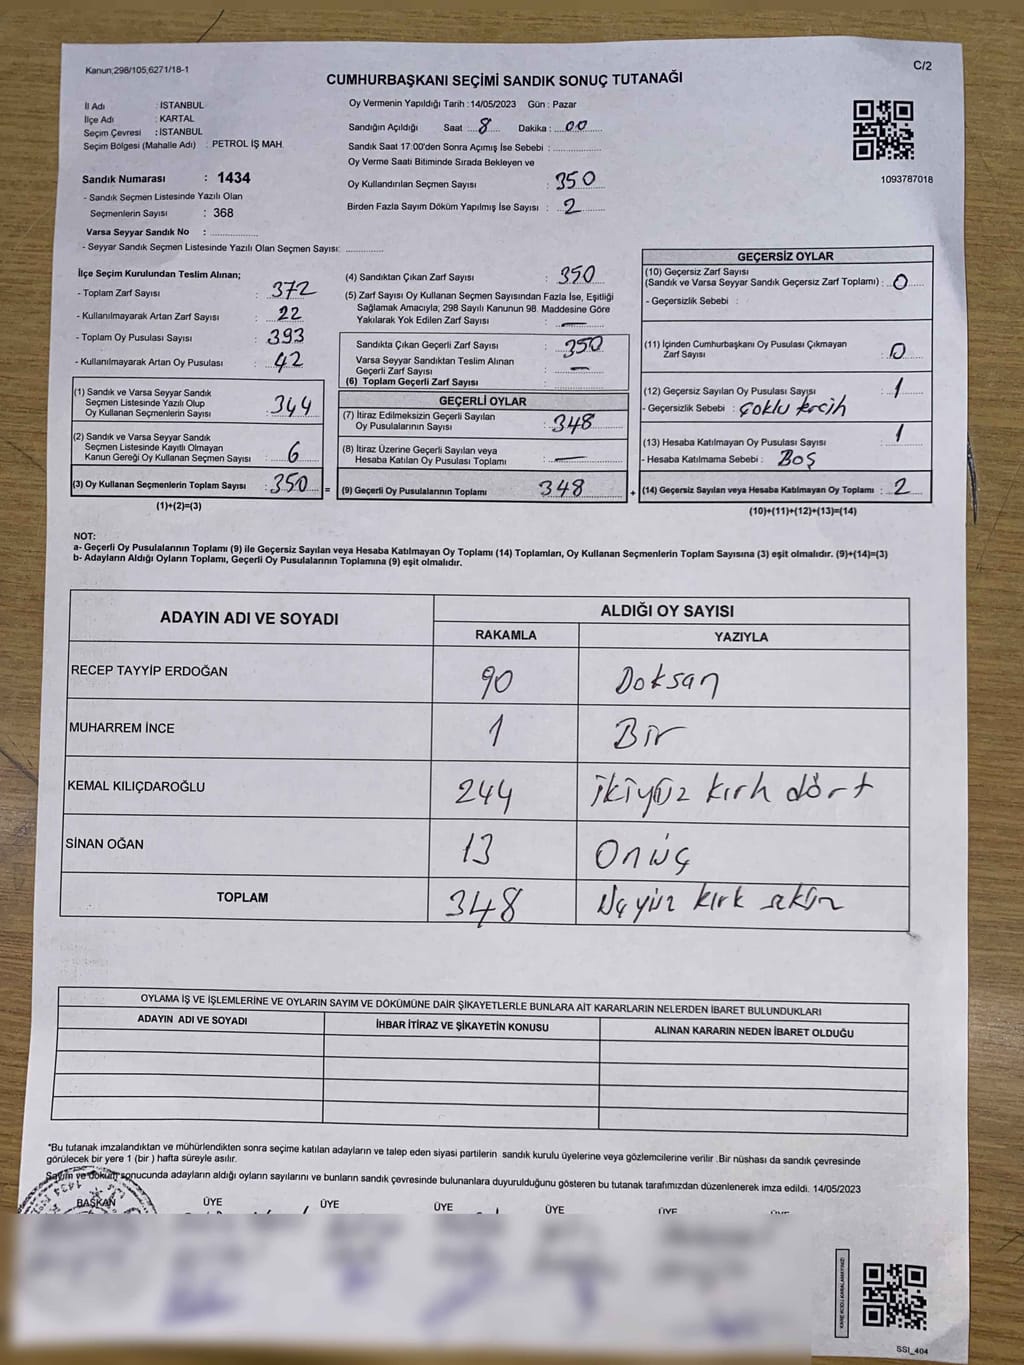 Kanun;298/105;6271/18-1
C/2
CUMHURBAŞKANI SEÇİMİ SANDIK SONUÇ TUTANAĞI
İl Adı : İSTANBUL
İlçe Adı : KARTAL
Seçim Çevresi : İSTANBUL
Seçim Bölgesi (Mahalle Adı) : PETROL İŞ MAH.
Sandık Numarası : 1434
- Sandık Seçmen Listesinde Yazılı Olan
Seçmenlerin Sayısı : 368
Varsa Seyyar Sandık No :
- Seyyar Sandık Seçmen Listesinde Yazılı Olan Seçmen Sayısı:
Oy Vermenin Yapıldığı Tarih : 14/05/2023 Gün : Pazar
Sandığın Açıldığı Saat : 8 Dakika : 00
Sandık Saat 17:00'den Sonra Açımış İse Sebebi :
Oy Verme Saati Bitiminde Sırada Bekleyen ve
Oy Kullandırılan Seçmen Sayısı : 350
Birden Fazla Sayım Döküm Yapılmış İse Sayısı : 2
1093787018
İlçe Seçim Kurulundan Teslim Alınan;
- Toplam Zarf Sayısı : 372
- Kullanılmayarak Artan Zarf Sayısı : 22
- Toplam Oy Pusulası Sayısı : 393
- Kullanılmayarak Artan Oy Pusulası : 42
(1) Sandık ve Varsa Seyyar Sandık
Seçmen Listesinde Yazılı Olup
Oy Kullanan Seçmenlerin Sayısı : 344
(2) Sandık ve Varsa Seyyar Sandık
Seçmen Listesinde Kayıtlı Olmayan
Kanun Gereği Oy Kullanan Seçmen Sayısı : 6
(3) Oy Kullanan Seçmenlerin Toplam Sayısı : 350
(1)+(2)=(3)
(4) Sandıktan Çıkan Zarf Sayısı : 350
(5) Zarf Sayısı Oy Kullanan Seçmen Sayısından Fazla İse, Eşitliği
Sağlamak Amacıyla, 298 Sayılı Kanunun 98. Maddesine Göre
Yakılarak Yok Edilen Zarf Sayısı : —
Sandıkta Çıkan Geçerli Zarf Sayısı : 350
Varsa Seyyar Sandıktan Teslim Alınan
Geçerli Zarf Sayısı : —
(6) Toplam Geçerli Zarf Sayısı :
GEÇERLİ OYLAR
(7) İtiraz Edilmeksizin Geçerli Sayılan
Oy Pusulalarının Sayısı : 348
(8) İtiraz Üzerine Geçerli Sayılan veya
Hesaba Katılan Oy Pusulası Toplamı : —
= (9) Geçerli Oy Pusulalarının Toplamı : 348 +
GEÇERSİZ OYLAR
(10) Geçersiz Zarf Sayısı
(Sandık ve Varsa Seyyar Sandık Geçersiz Zarf Toplamı) : 0
- Geçersizlik Sebebi :
(11) İçinden Cumhurbaşkanı Oy Pusulası Çıkmayan
Zarf Sayısı : 0
(12) Geçersiz Sayılan Oy Pusulası Sayısı : 1
- Geçersizlik Sebebi : Çoklu tercih
(13) Hesaba Katılmayan Oy Pusulası Sayısı : 1
- Hesaba Katılmama Sebebi : Boş
(14) Geçersiz Sayılan veya Hesaba Katılmayan Oy Toplamı : 2
(10)+(11)+(12)+(13)=(14)
NOT:
a- Geçerli Oy Pusulalarının Toplamı (9) ile Geçersiz Sayılan veya Hesaba Katılmayan Oy Toplamı (14) Toplamları, Oy Kullanan Seçmenlerin Toplam Sayısına (3) eşit olmalıdır. (9)+(14)=(3)
b- Adayların Aldığı Oyların Toplamı, Geçerli Oy Pusulalarının Toplamına (9) eşit olmalıdır.
ADAYIN ADI VE SOYADI
ALDIĞI OY SAYISI
RAKAMLA YAZIYLA
RECEP TAYYİP ERDOĞAN 90 Doksan
MUHARREM İNCE 1 Bir
KEMAL KILIÇDAROĞLU 244 ikiyüz kırk dört
SİNAN OĞAN 13 Onüç
TOPLAM 348 üçyüz kırk sekiz
OYLAMA İŞ VE İŞLEMLERİNE VE OYLARIN SAYIM VE DÖKÜMÜNE DAİR ŞİKAYETLERLE BUNLARA AİT KARARLARIN NELERDEN İBARET BULUNDUKLARI
ADAYIN ADI VE SOYADI İHBAR İTİRAZ VE ŞİKAYETİN KONUSU ALINAN KARARIN NEDEN İBARET OLDUĞU
*Bu tutanak imzalandıktan ve mühürlendikten sonra seçime katılan adayların ve talep eden siyasi partilerin sandık kurulu üyelerine veya gözlemcilerine verilir .Bir nüshası da sandık çevresinde
görülecek bir yere 1 (bir ) hafta süreyle asılır.
Sayım ve döküm sonucunda adayların aldığı oyların sayılarını ve bunların sandık çevresinde bulunanlara duyurulduğunu gösteren bu tutanak tarafımızdan düzenlenerek imza edildi. 14/05/2023
BAŞKAN ÜYE ÜYE ÜYE ÜYE ÜYE ÜYE
SSI_404